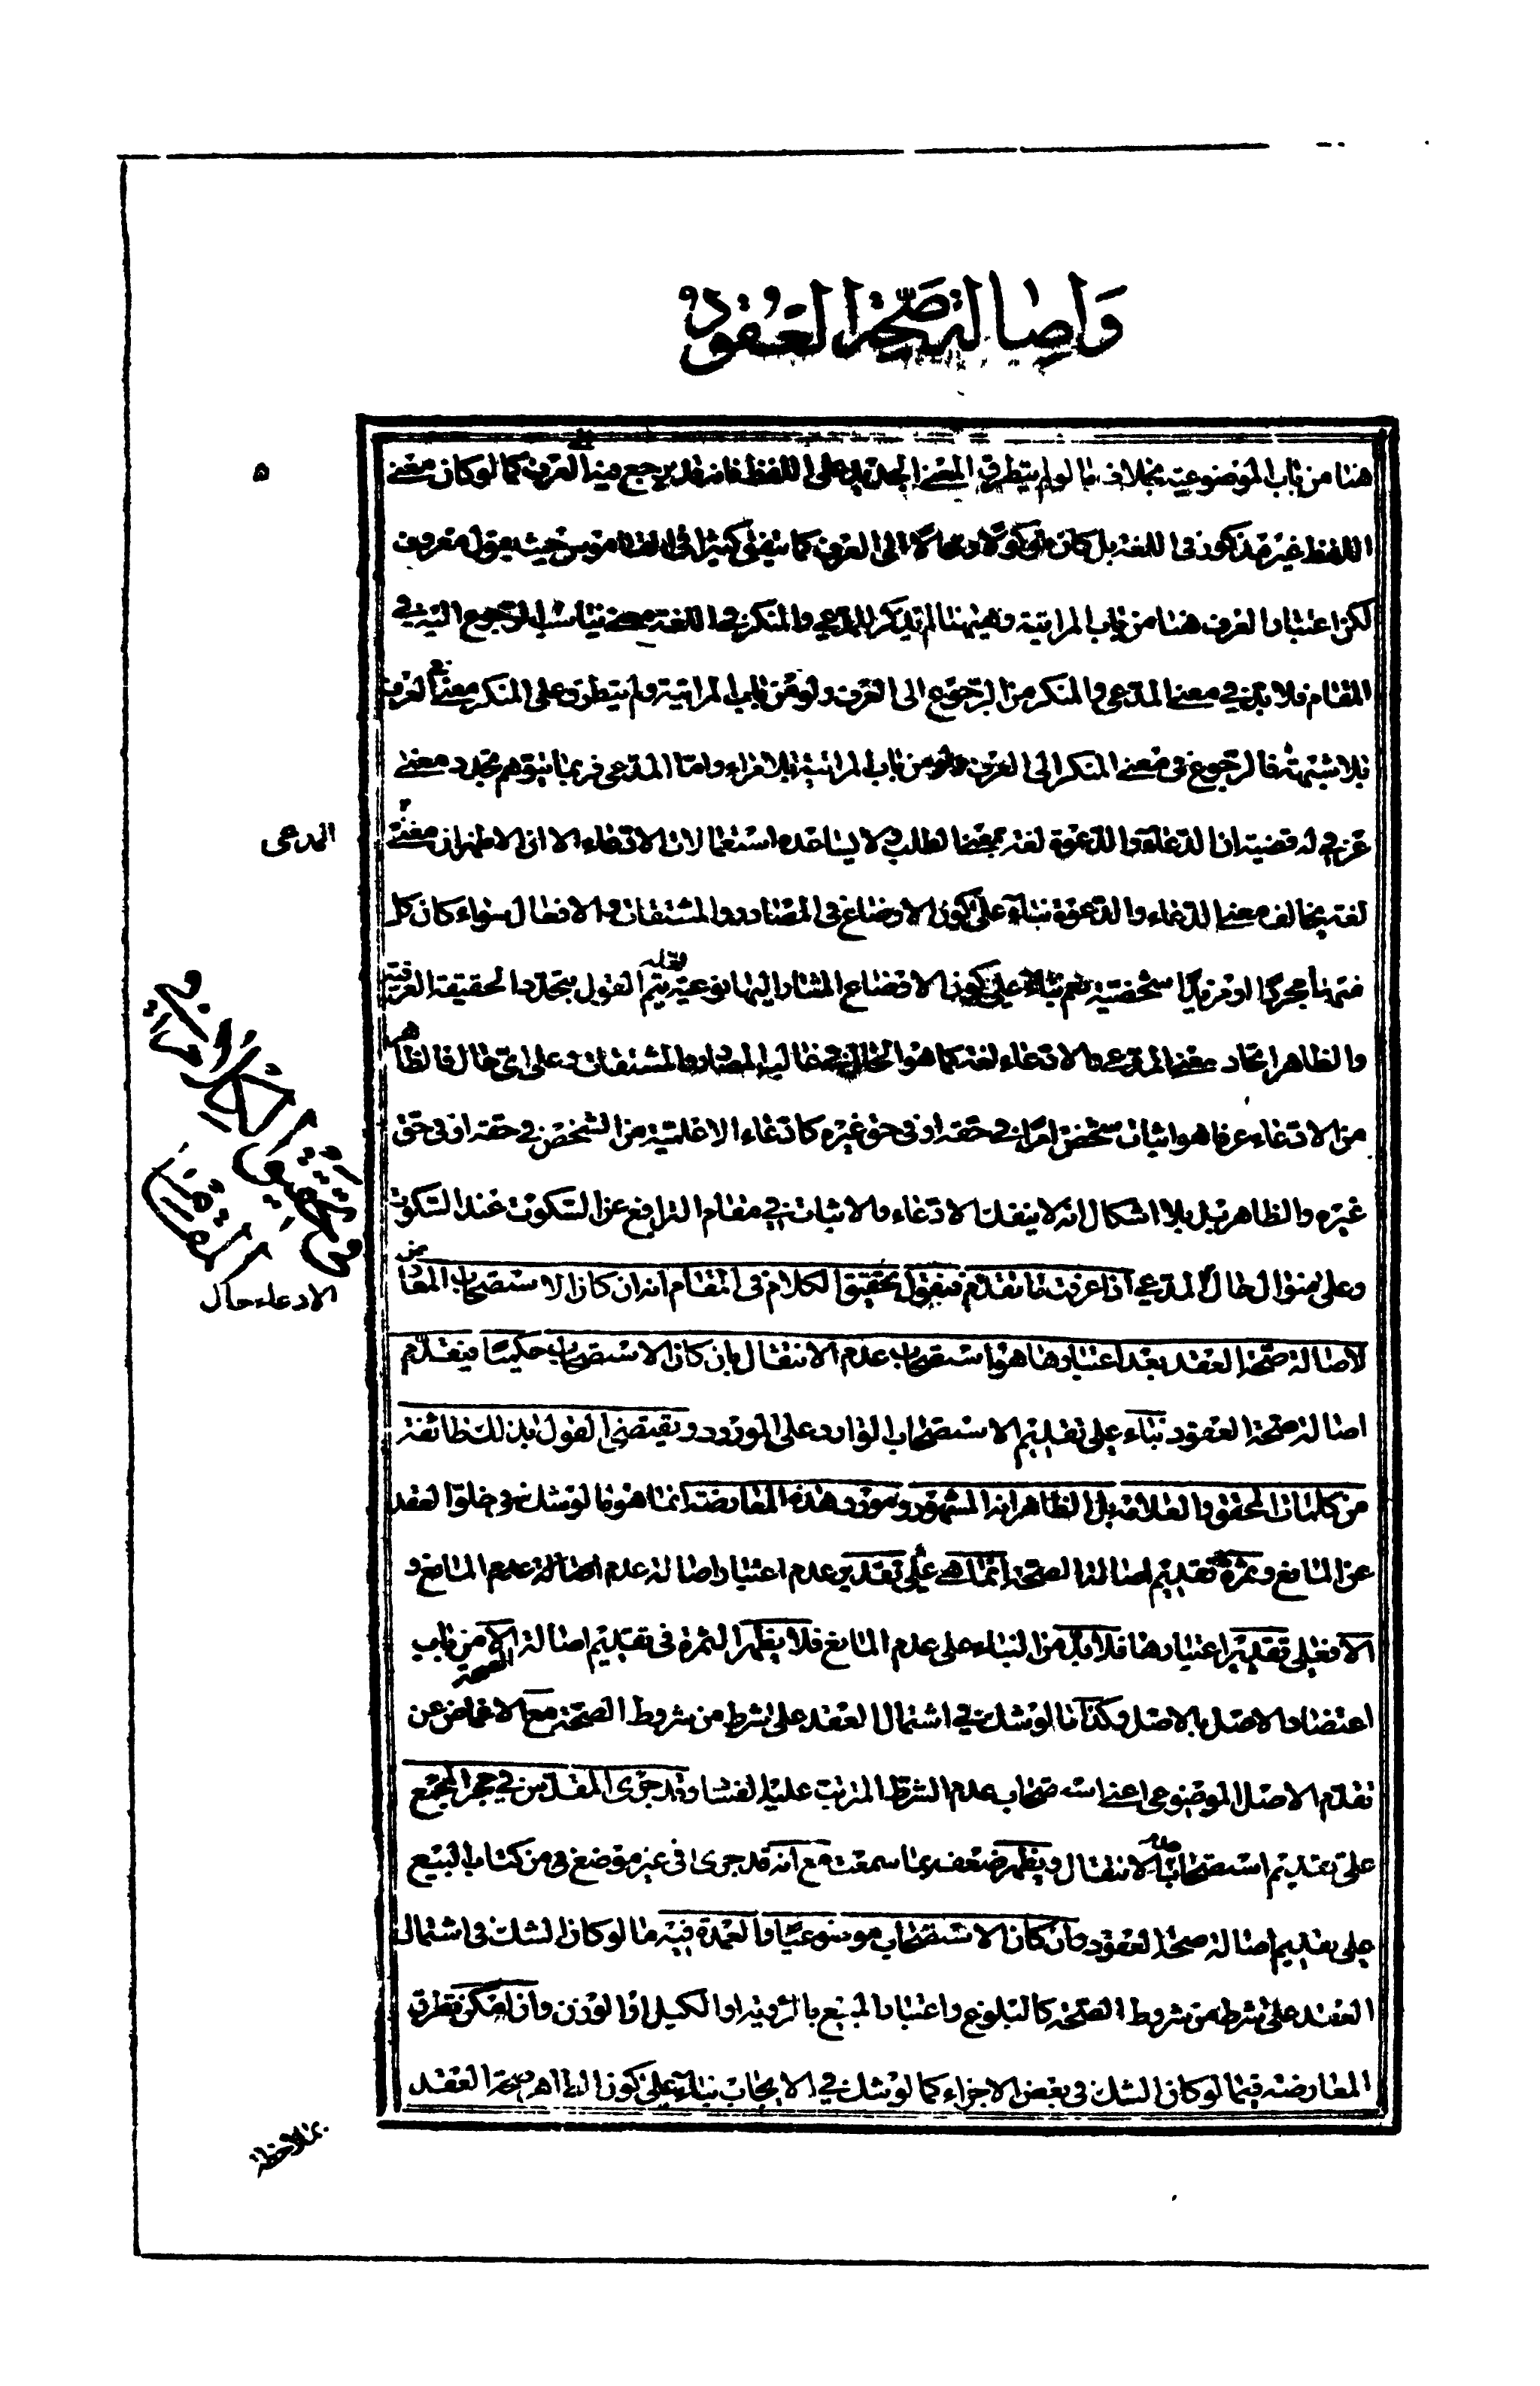 واصالة صحة العقود
۵
هنا من باب الموضوعية بخلاف ما لو لم يتطرق المعنى الجديد على اللفظ فانه قد يرجع فيه الى العرف كما لو كان معنى
اللفظ غير مذكور فى اللغة بل كان موكولا ومحالا الى العرف كما يتفق كثيرا فى القاموس حيث يقول معروف
لكن اعتبار العرف هنا من باب المراتية وهيهنا لم يذكر للمدعي والمنكر فى اللغة معنى يناسب الرجوع اليه في
المقام فلا بد في معنى المدعى والمنكر من الرجوع الى العرف ولو من باب المراتية ولم يتطرق على المنكر معنى فى العرف
بلا شبهة فالرجوع فى معنى المنكر الى العرف ولو من باب المراتية بلا اغراء واما المدعى فربما يتوهم تجدد معنى
عرفي له قضية ان الدعاء والدعوة لغة بمعنى الطلب ولا يساعده استعمالات الادعاء الا ان الاظهر ان معنى
المدعى
لغة يخالف معنى الدعاء والدعوة بناء على كون الاوضاع فى المصادر والمشتقات والافعال سواء كان كل
منهما مجردا او مزيدا شخصية نعم بناء على كون الاوضاع المشار اليها نوعية يتم القول بتجدد الحقيقة العرفية
والظاهر اتحاد معنى المدعي والادعاء لغة كما هو الحال فى غالب المصادر والمشتقات وعلى اي حال فالظاهر
من الادعاء عرفا هو اثبات شخص امرا في حقه او فى حق غيره كادعاء الاغلبية من الشخص في حقه او فى حق
غيره والظاهر بل بلا اشكال انه لا ينفك الادعاء والاثبات في مقام الترافع عن السكوت عند السكوت
وعلى منوال حال المدعي اذا عرفت ما تقدم فنقول تحقيق الكلام فى المقام انه ان كان الاستصحاب المعارض
الادعاء حال
فى تحقيق الكلام
لاصالة صحة العقد بعد اعتبارها هو استصحاب عدم الانتقال بان كان الاستصحاب حكميا فيقدم
اصالة صحة العقود بناء على تقديم الاستصحاب الوارد على المورود ويقتضي القول بذلك طائفة
من كلمات المحقق والعلامة بل الظاهر انه المشهور ومورد هذه المعارضة انما هو ما لو شك فى خلو العقد
عن المانع وثمرة تقديم اصالة الصحة انما هي على تقدير عدم اعتبار اصالة عدم اصالة عدم المانع و
الا فعلى تقدير اعتبارها فلا بد من البناء على عدم المانع فلا يظهر الثمرة فى تقديم اصالة الصحة الا من باب
اعتضاد الاصل بالاصل وكذا ما لو شك في اشتمال العقد على شرط من شروط الصحة مع الاغماض عن
تقدم الاصل الموضوعي اعني استصحاب عدم الشرط المترتب عليه الفساد وقد جرى المقدس في حجر المجمع
على تقديم استصحاب عدم الانتقال ويظهر ضعفه بما سمعت مع انه قد جرى فى غير موضع من كتاب البيع
على تقديم اصالة صحة العقود وان كان الاستصحاب موضوعيا والعمدة فيه ما لو كان الشك فى اشتمال
العقد على شرط من شروط الصحة كالبلوغ واعتبار المبيع بالرؤية او الكيل او الوزن وان امكن تطرق
المعارضة فيما لو كان الشك فى بعض الاجزاء كما لو شك في الايجاب بناء على كون الظاهر صحة العقد
بملاحظة